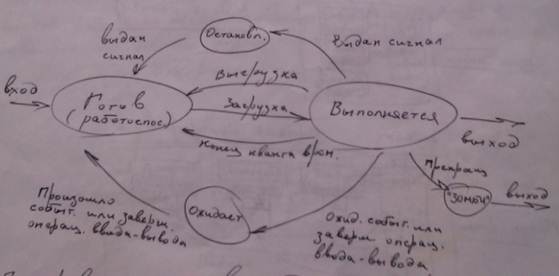 Остановл.
выдан
сигнал
Выдан сигнал
вход
Выгрузка
Готов
(работоспос)
Загрузка
Выполняется
выход
Конец кванта врем.
Прекращ
"Зомби"
выход
Ожидает
Произошло
событ. или заверш.
операц. ввода-вывода
Ожид. событ. или
заверш операц.
ввода-вывода